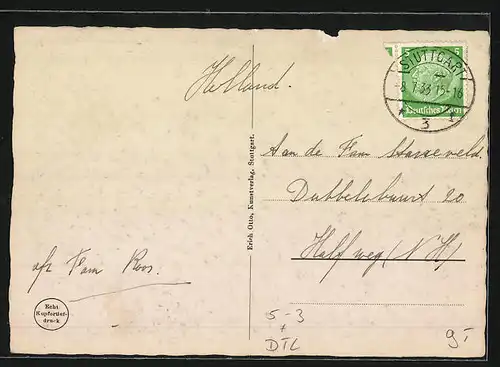 Holland.
5 5
STUTTGART
-8.7.33.15-16
* 1
3
Deutsches Reich
Erich Otto, Kunstverlag, Stuttgart.
Aan de Fam
Dubbelebuurt 20
Halfweg (N H)
afz Fam Roos.
Echt
Kupfertief-
druck
5-3
DTL